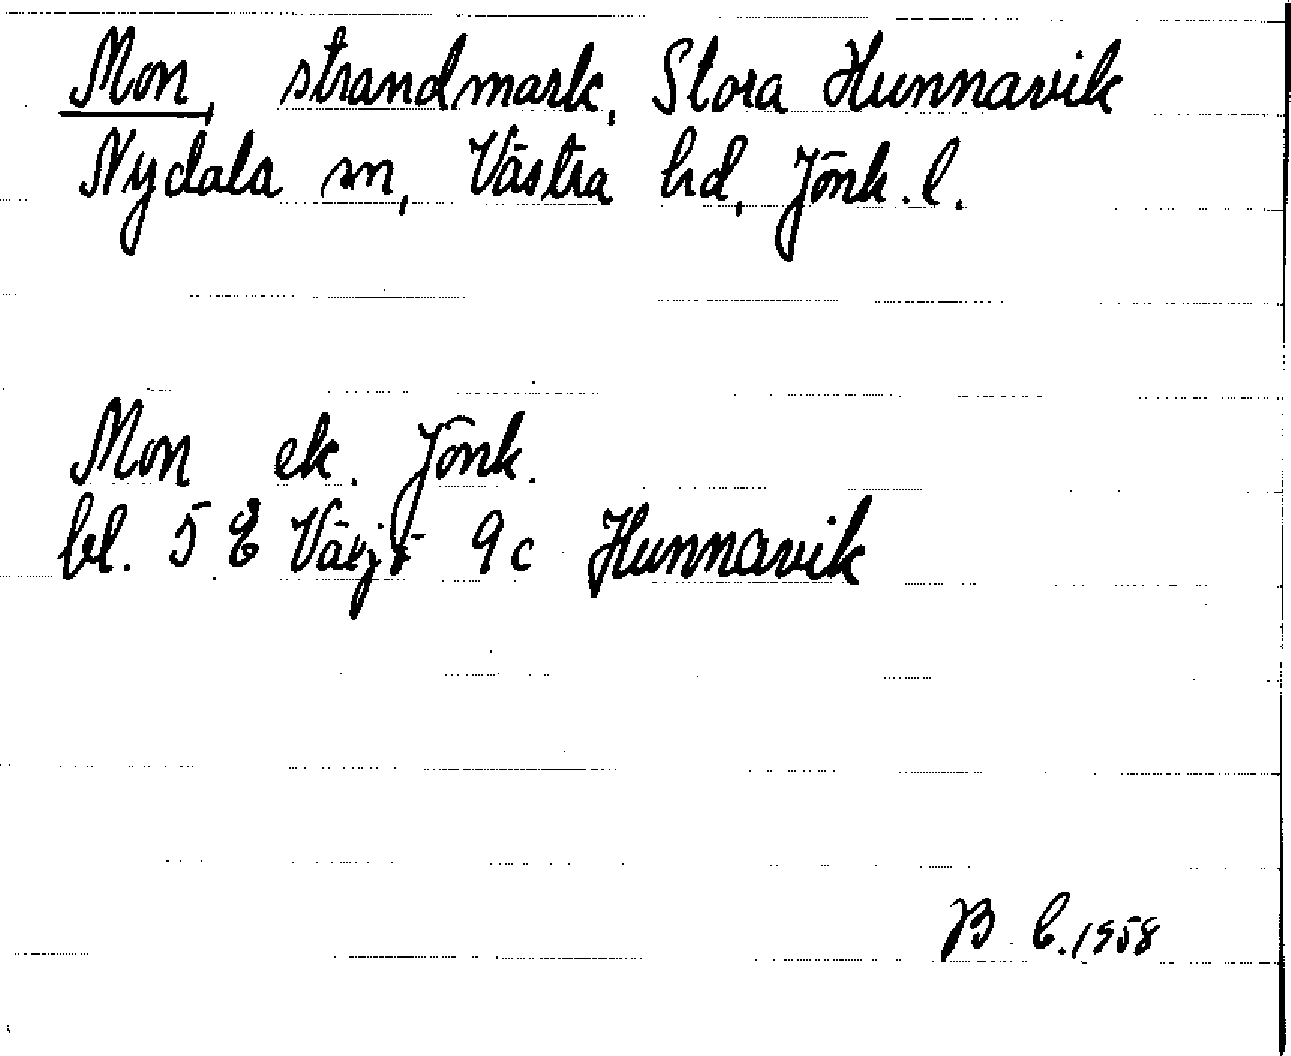 Mon, strandmark, Stora Hunnavik
Nydala sn, Västra hd, Jönk. l.
Mon ek. Jönk.
bl. 5 E Växjö 9c Hunnavik
B C. 1958